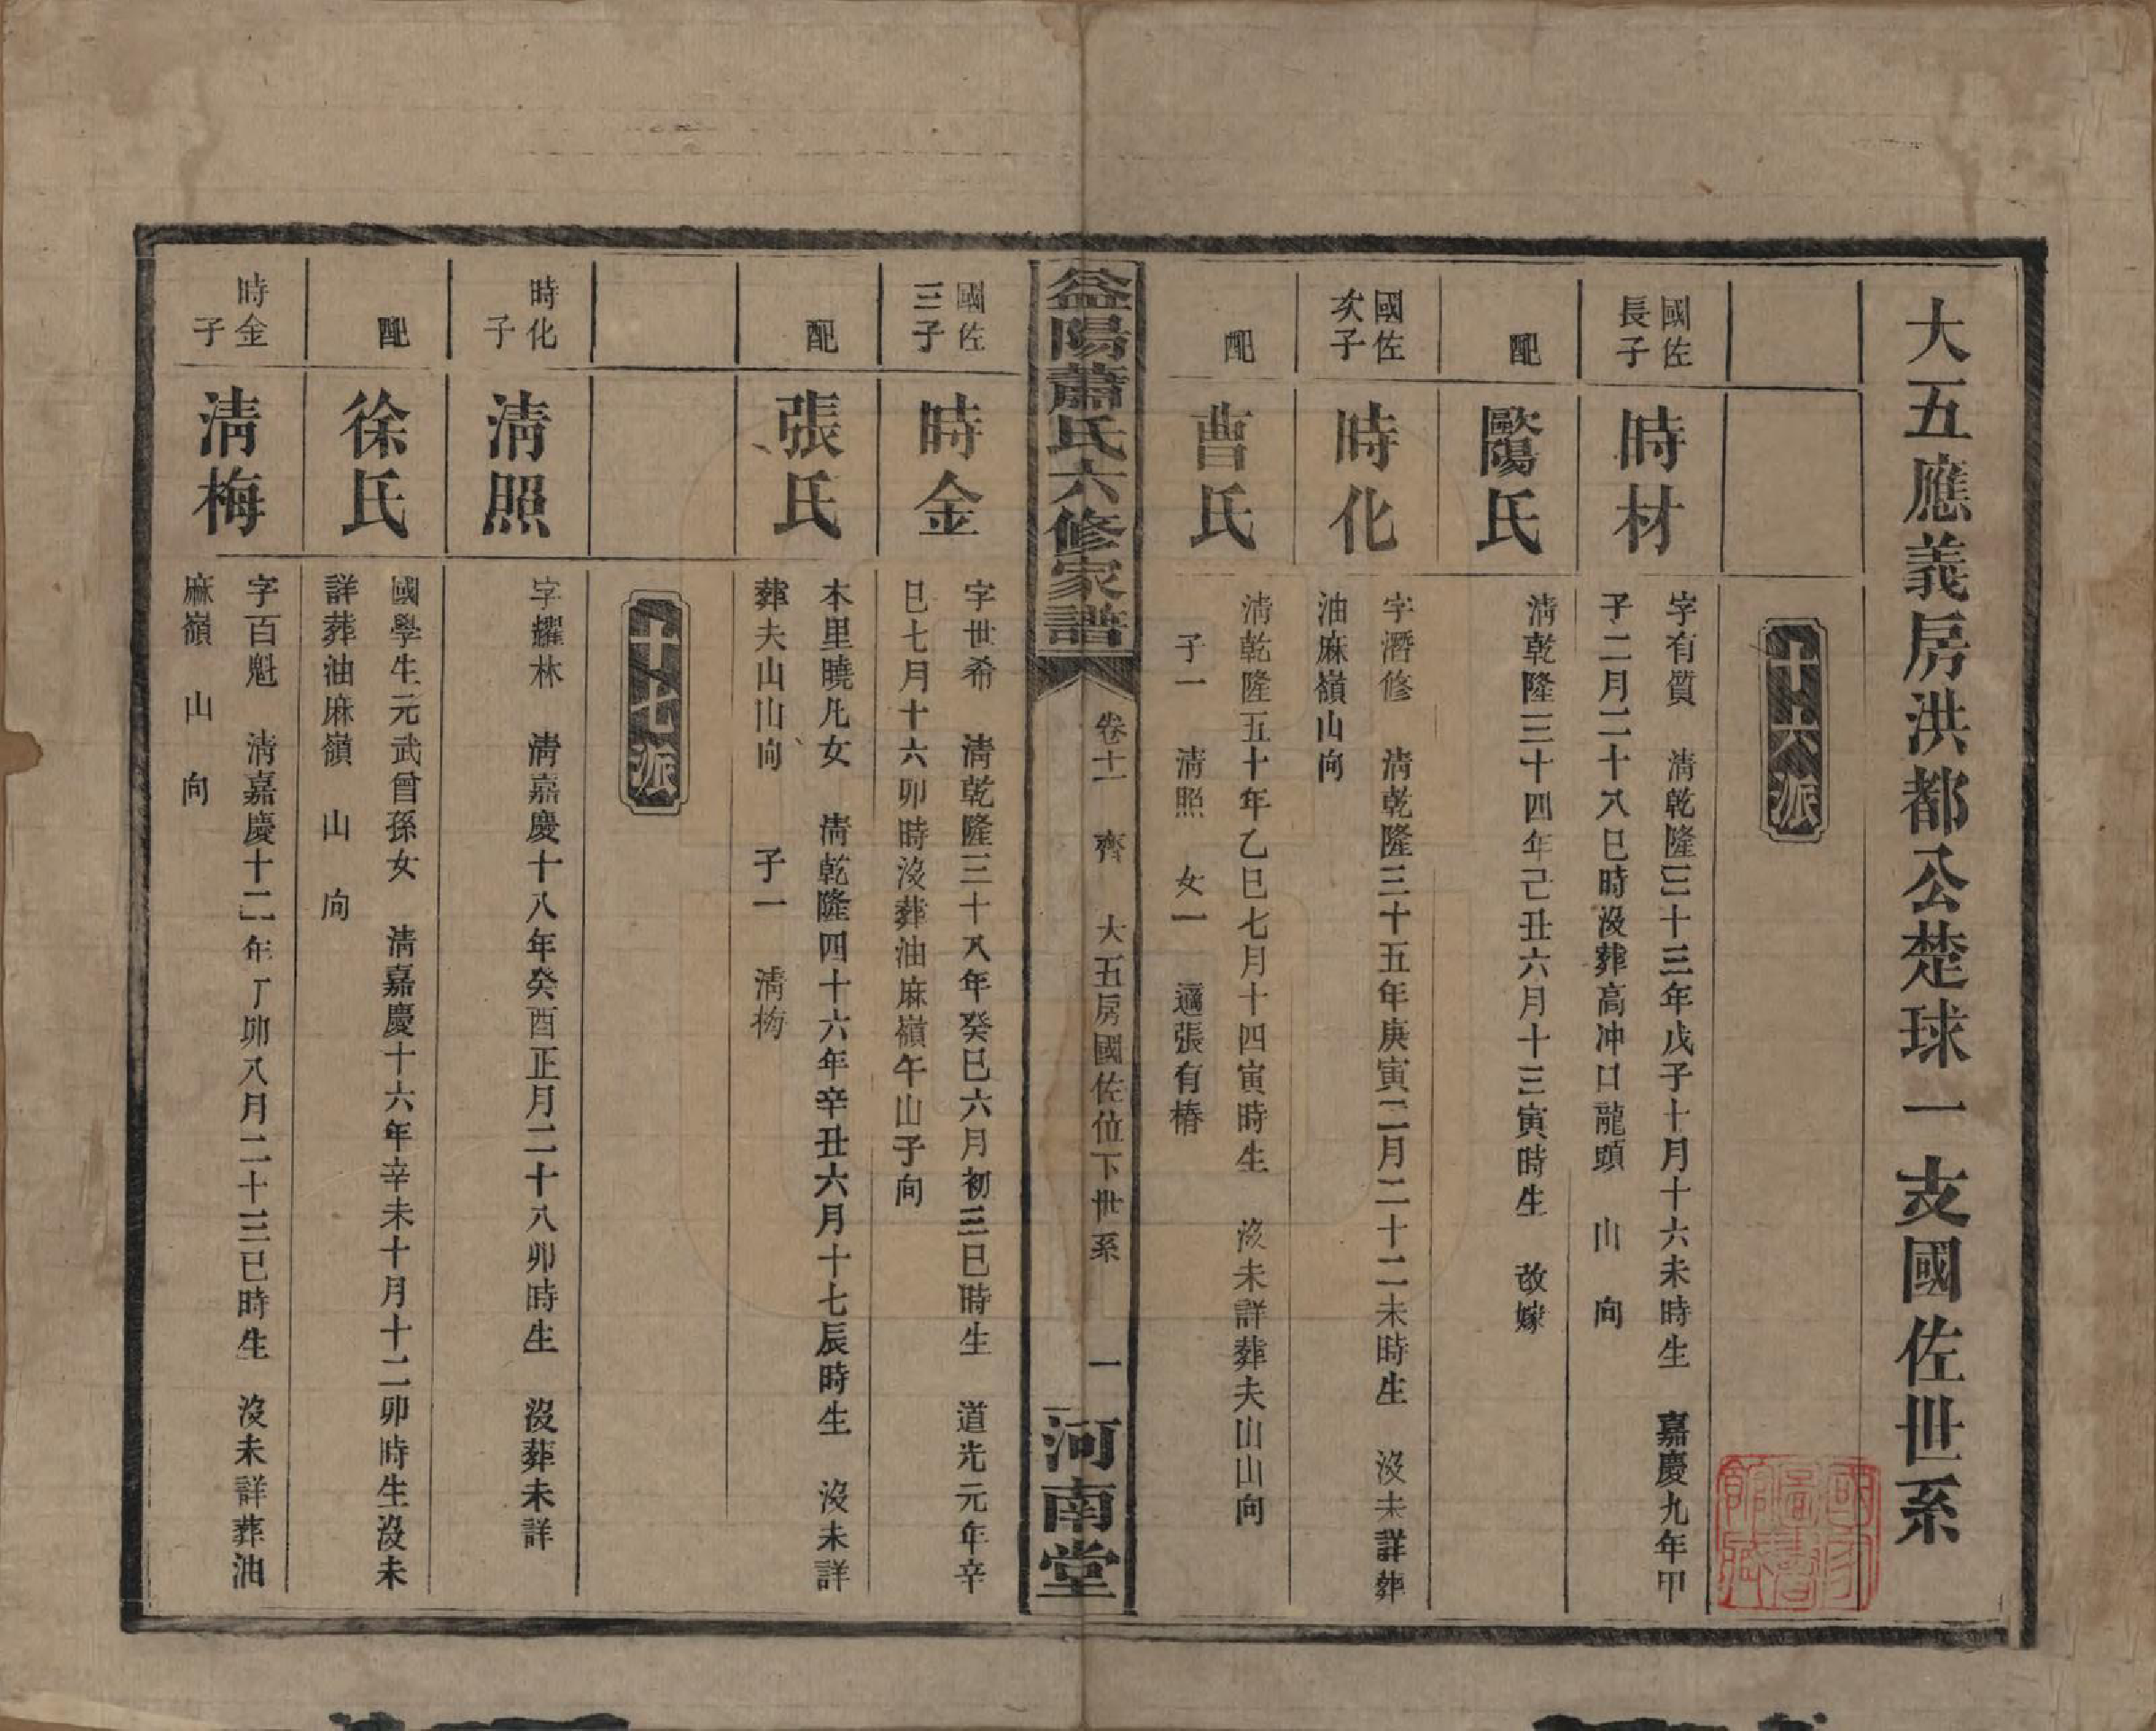 大五應義房洪都公楚球一支國佐世系
十六派
國佐
長子
時材
字有質　清乾隆三十三年戊子十月十六未時生　嘉慶九年甲
子二月二十八巳時沒葬高冲口龍頭　山　向
配
歐陽氏
清乾隆三十四年己丑六月十三寅時生　改嫁
國佐
次子
時化
字潛修　清乾隆三十五年庚寅二月二十二未時生　沒未詳葬
油麻嶺山向
配
曹氏
清乾隆五十年乙巳七月十四寅時生　沒未詳葬夫山山向
子一　清照　女一　適張有椿
益陽蕭氏六修家譜
卷十一　齊　大五房國佐位下世系　一
河南堂
國佐
三子
時金
字世希　清乾隆三十八年癸巳六月初三巳時生　道光元年辛
巳七月十六卯時沒葬油麻嶺午山子向
配
張氏
木里曉凡女　清乾隆四十六年辛丑六月十七辰時生　沒未詳
葬夫山山向　子一　清梅
十七派
時化
子
清照
字耀林　清嘉慶十八年癸酉正月二十八卯時生　沒葬未詳
配
徐氏
國學生元武曾孫女　清嘉慶十六年辛未十月十二卯時生沒未
詳葬油麻嶺　山　向
時金
子
清梅
字百魁　清嘉慶十二年丁卯八月二十三巳時生　沒未詳葬油
麻嶺　山　向